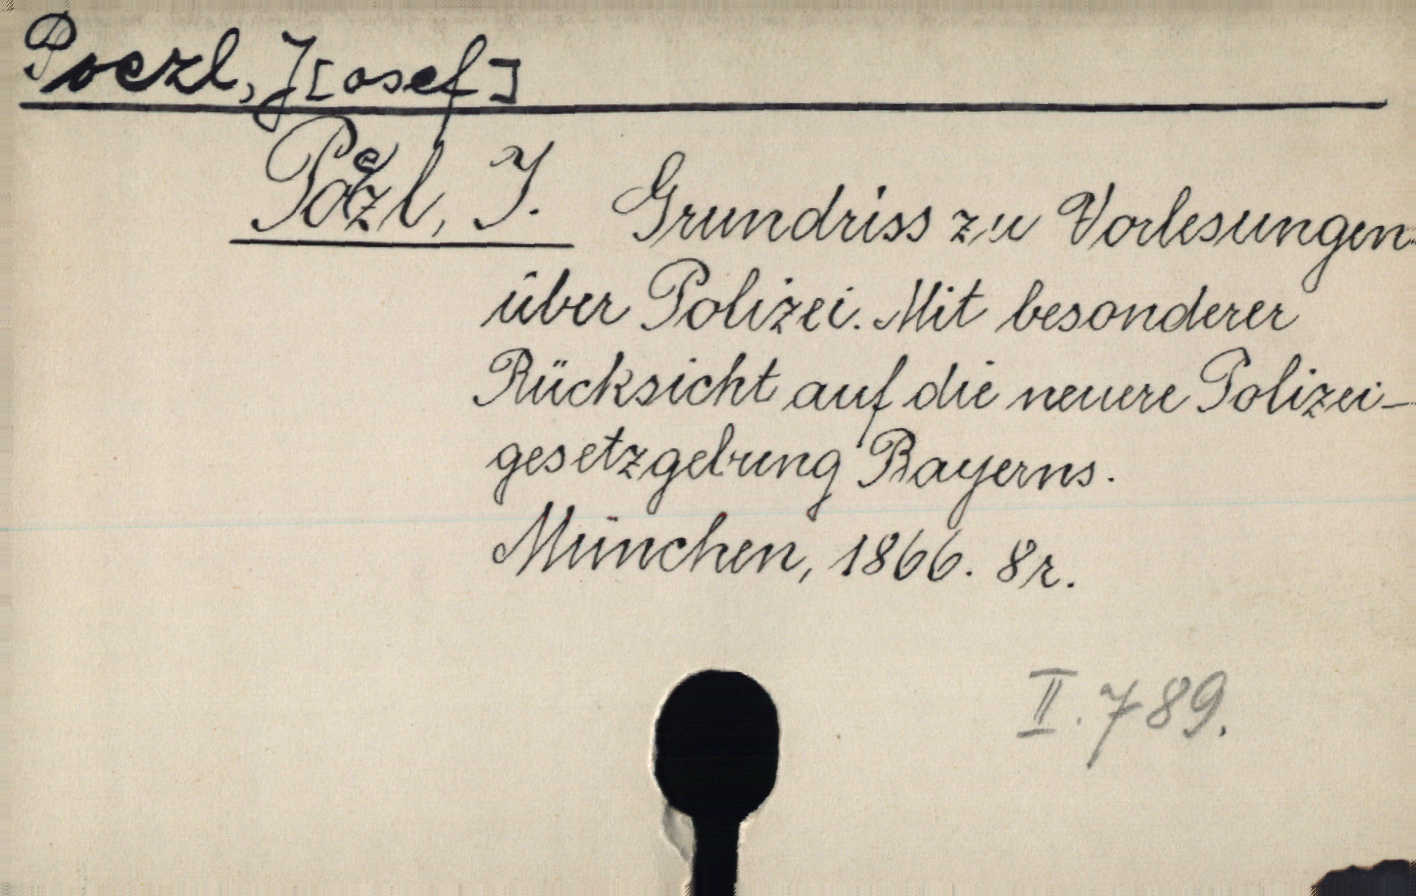 Poezl, J[osef]
Poezl, J. Grundriss zu Vorlesungen
über Polizei. Mit besonderer
Rücksicht auf die neuere Polizei-
gesetzgebung Bayerns.
München, 1866. 8r.
II. 789.